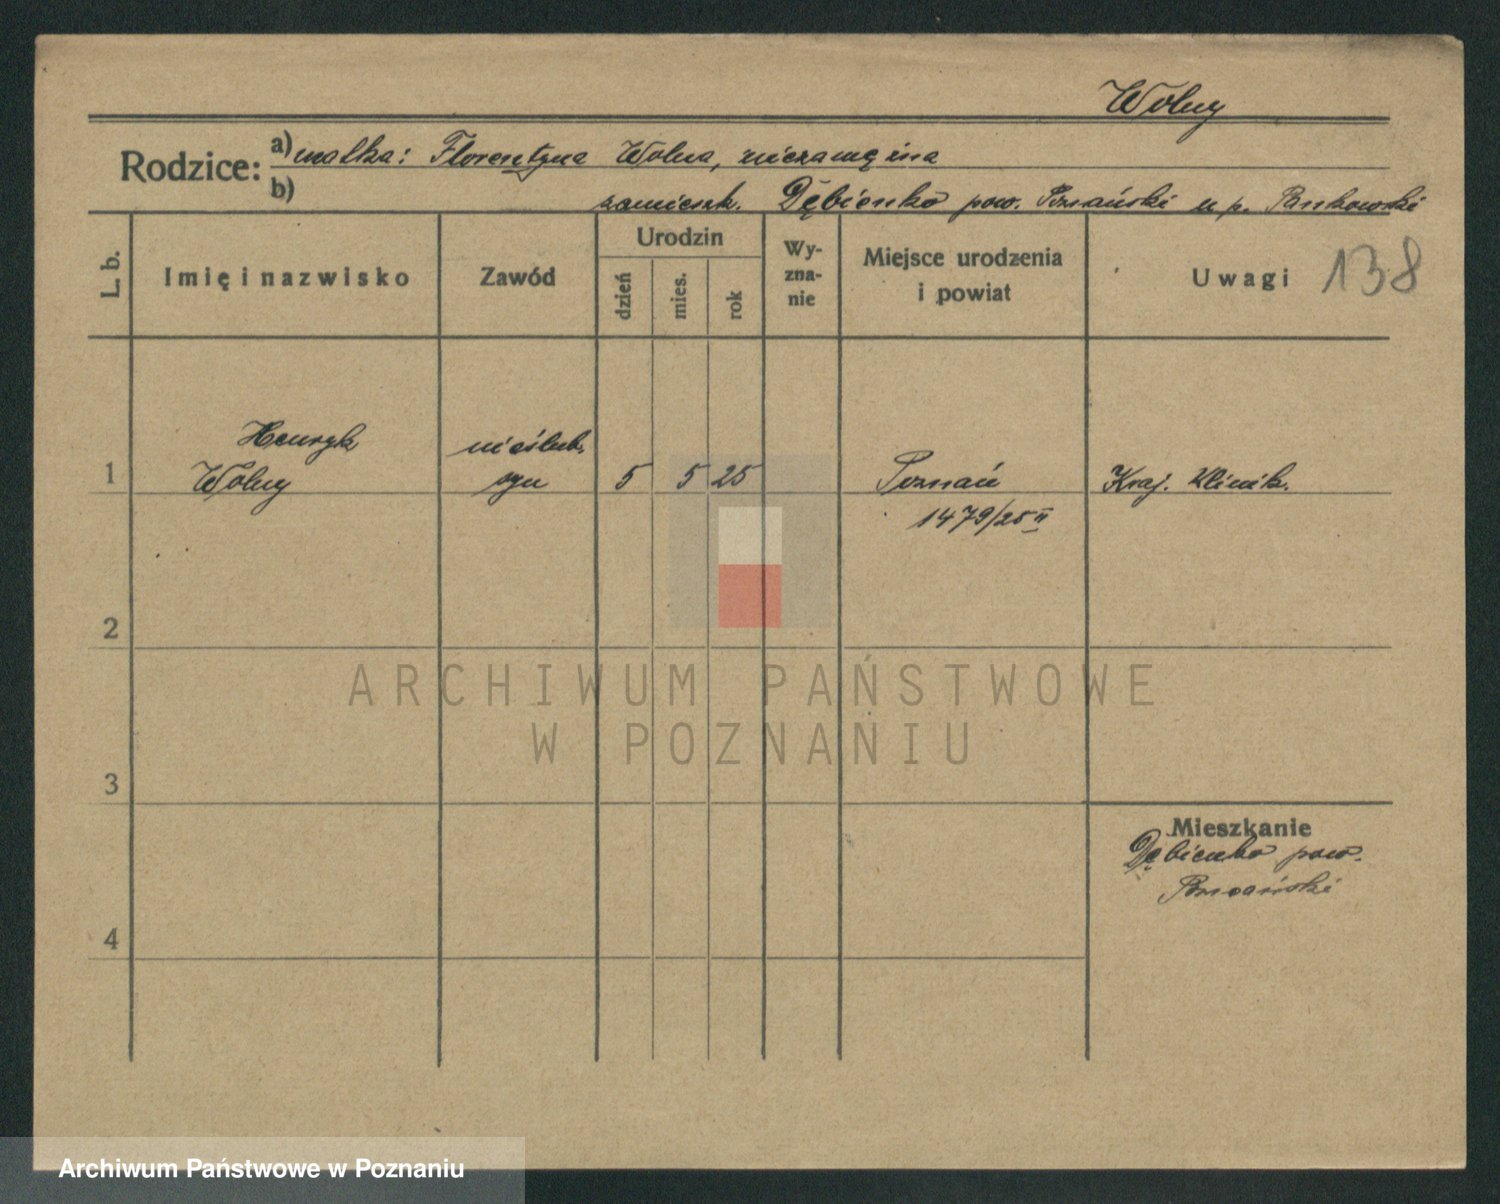 Wolny
Rodzice: a) matka: Florentyna Wolna, niezamężna
b) zamieszk. Dębienko pow. Poznański u p. Pankowski
L. b.
Imię i nazwisko
Zawód
Urodzin
dzień
mies.
rok
Wy-
zna-
nie
Miejsce urodzenia
i powiat
Uwagi
138
Henryk
nieślub.
1 Wolny syn 5 5 25 Poznań Kraj. Klinik.
1479/25 II
2
ARCHIWUM PAŃSTWOWE
W POZNANIU
3
Mieszkanie
Dębienko pow.
Poznański
4
Archiwum Państwowe w Poznaniu